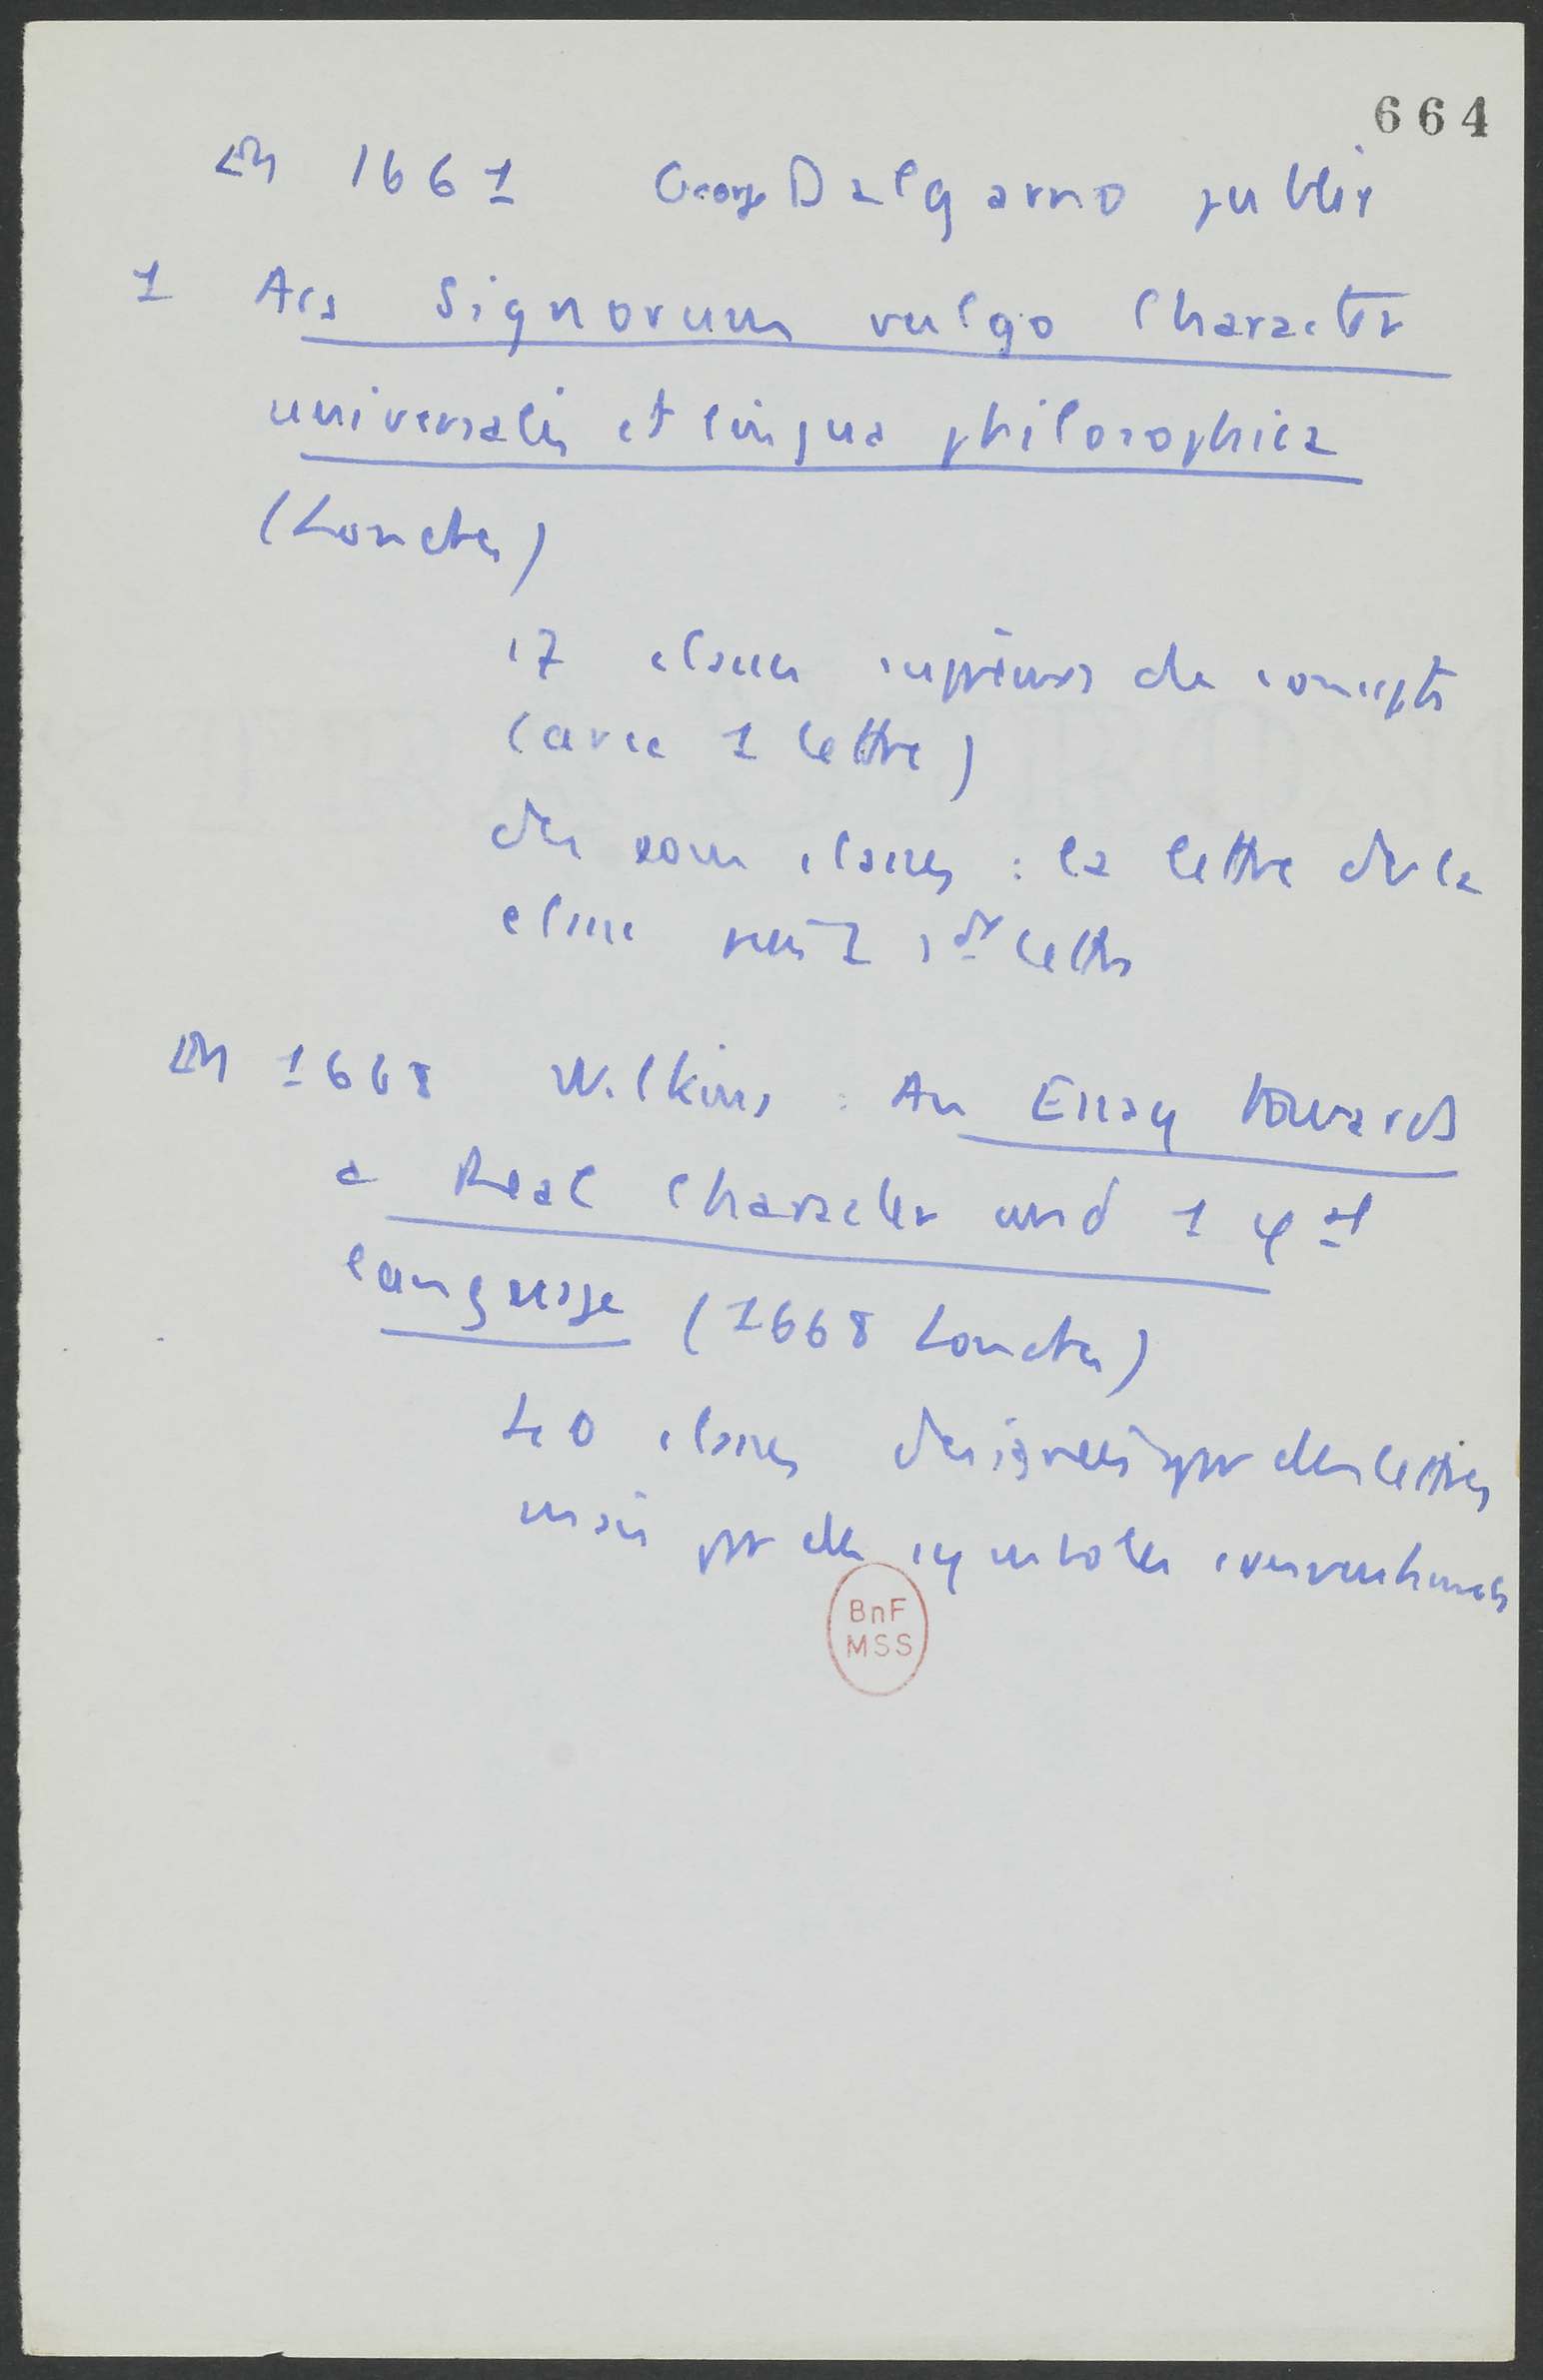 664
En 1661 George Dalgarno publie
1 Ars Signorum vulgo Character
universalis et lingua philosophica
(Londres)
17 classes suprêmes de concepts
(avec 1 lettre)
des sous classes : la lettre de la
classe puis 1 lettre
En 1668 Wilkins : An Essay towards
a Real Character and 1 φal
language (1668 Londres)
40 classes designees par des lettres
mais par des symboles conventionnels
BnF
MSS